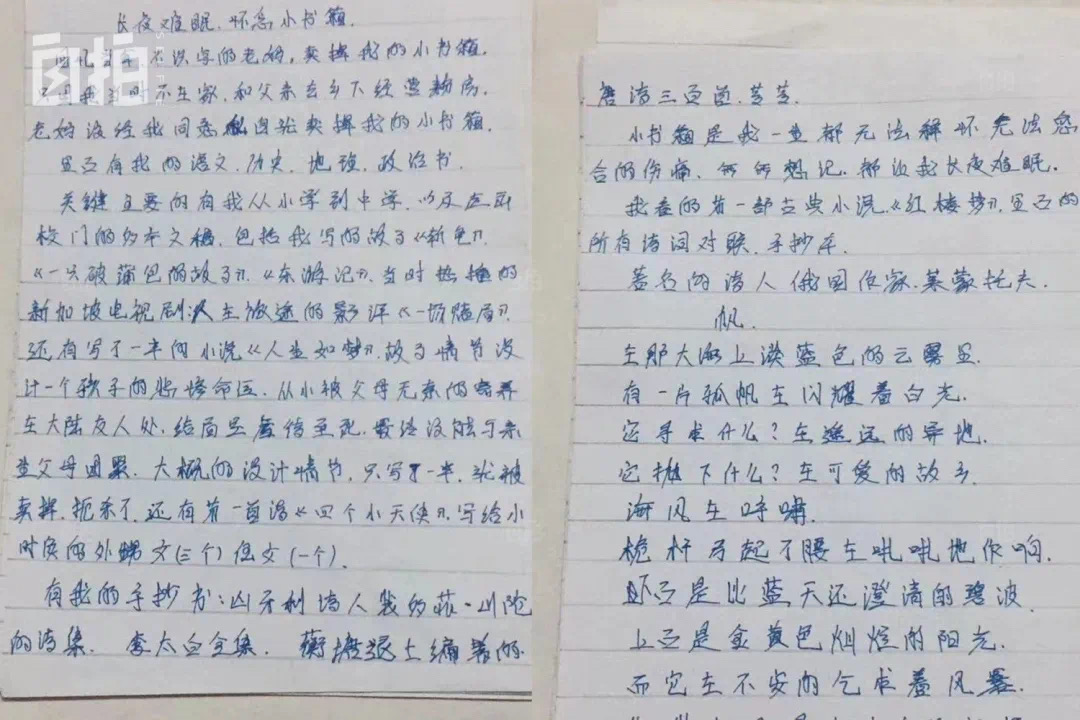 长夜难眠.怀念小书箱.
不识字的老妈,卖掉我的小书箱.
我当时不在家,和父亲去乡下经营粉房.
老妈没经我同意私自卖掉我的小书箱.
里面有我的语文.历史.地理.政治书.
关键主要的有我从小学到中学.以及走出
校门的多本文稿,包括我写的故事《新包》.
《一只破蒲包的故事》.《东游记》.当时热播的
新加坡电视剧:人在旅途的影评《一场赌局》.
还有写了一半的小说《人生如梦》.故事情节设
计一个孩子的悲惨命运.从小被父母无奈的寄养
在大陆友人处.结局是客死.最终没能与亲
生父母团聚.大概的设计情节,只写了一半.就被
卖掉.扼杀了.还有着一首诗《四个小天使》.写给小
时候的外甥 文(三个)侄女(一个).
有我的手抄书:匈牙利诗人裴多菲·山陀
的诗集. 李太白全集. 蘅塘退士编著的
唐诗三百首.等等.
小书箱是我一生都无法释怀无法愈
合的伤痛.每每想记.都让我长夜难眠.
我看的第一部古典小说.《红楼梦》.里面的
所有诗词对联.手抄本.
著名的诗人俄国作家.莱蒙托夫.
帆.
在那大海上淡蓝色的云雾里.
有一片孤帆在闪耀着白光.
它寻求什么?在遥远的异地.
它抛下什么?在可爱的故乡.
海风在呼啸.
桅杆弓起了腰在吼吼地作响.
下面是比蓝天还澄清的碧波.
上面是金黄色灿烂的阳光.
而它在不安的乞求着风暴.